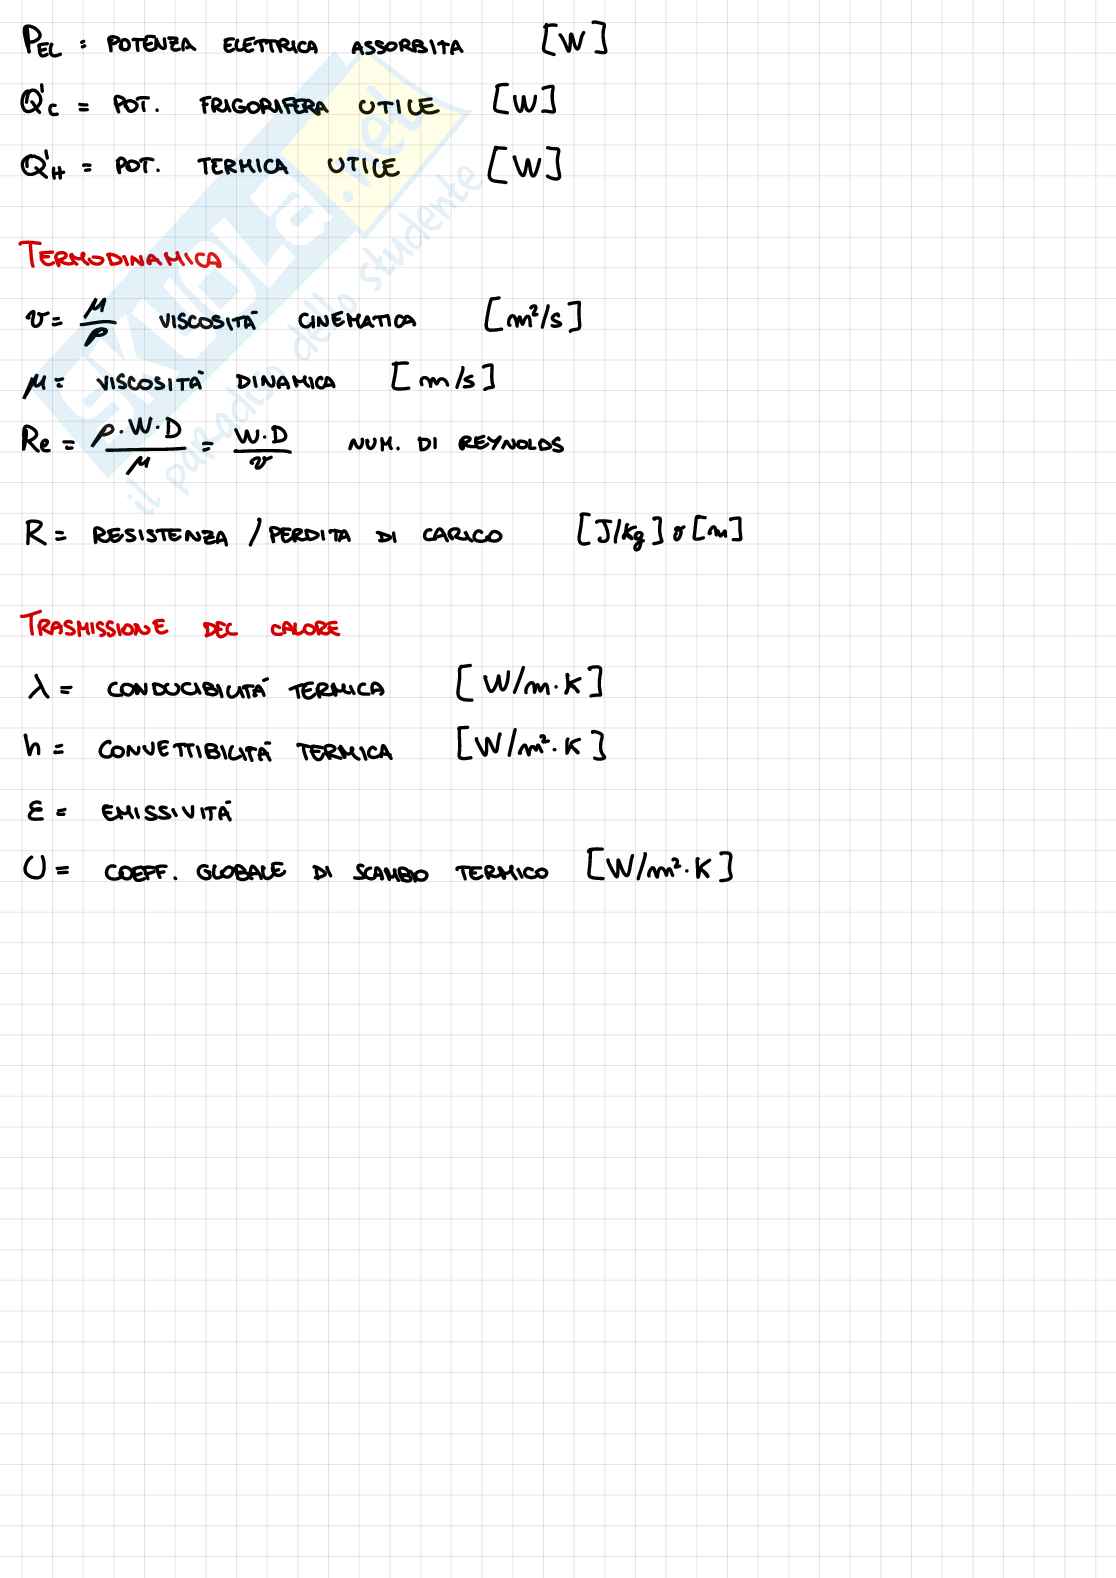 P_EL = POTENZA ELETTRICA ASSORBITA [W]
Q'_C = POT. FRIGORIFERA UTILE [W]
Q'_H = POT. TERMICA UTILE [W]
TERMODINAMICA
ν = μ/ρ VISCOSITÀ CINEMATICA [m²/s]
μ = VISCOSITÀ DINAMICA [m/s]
Re = ρ·W·D/μ = W·D/ν NUM. DI REYNOLDS
R = RESISTENZA / PERDITA DI CARICO [J/kg] o [m]
TRASMISSIONE DEL CALORE
λ = CONDUCIBILITÀ TERMICA [W/m·K]
h = CONVETTIBILITÀ TERMICA [W/m²·K]
ε = EMISSIVITÀ
U = COEFF. GLOBALE DI SCAMBIO TERMICO [W/m²·K]
SKUOLa.net
il paradiso dello studente